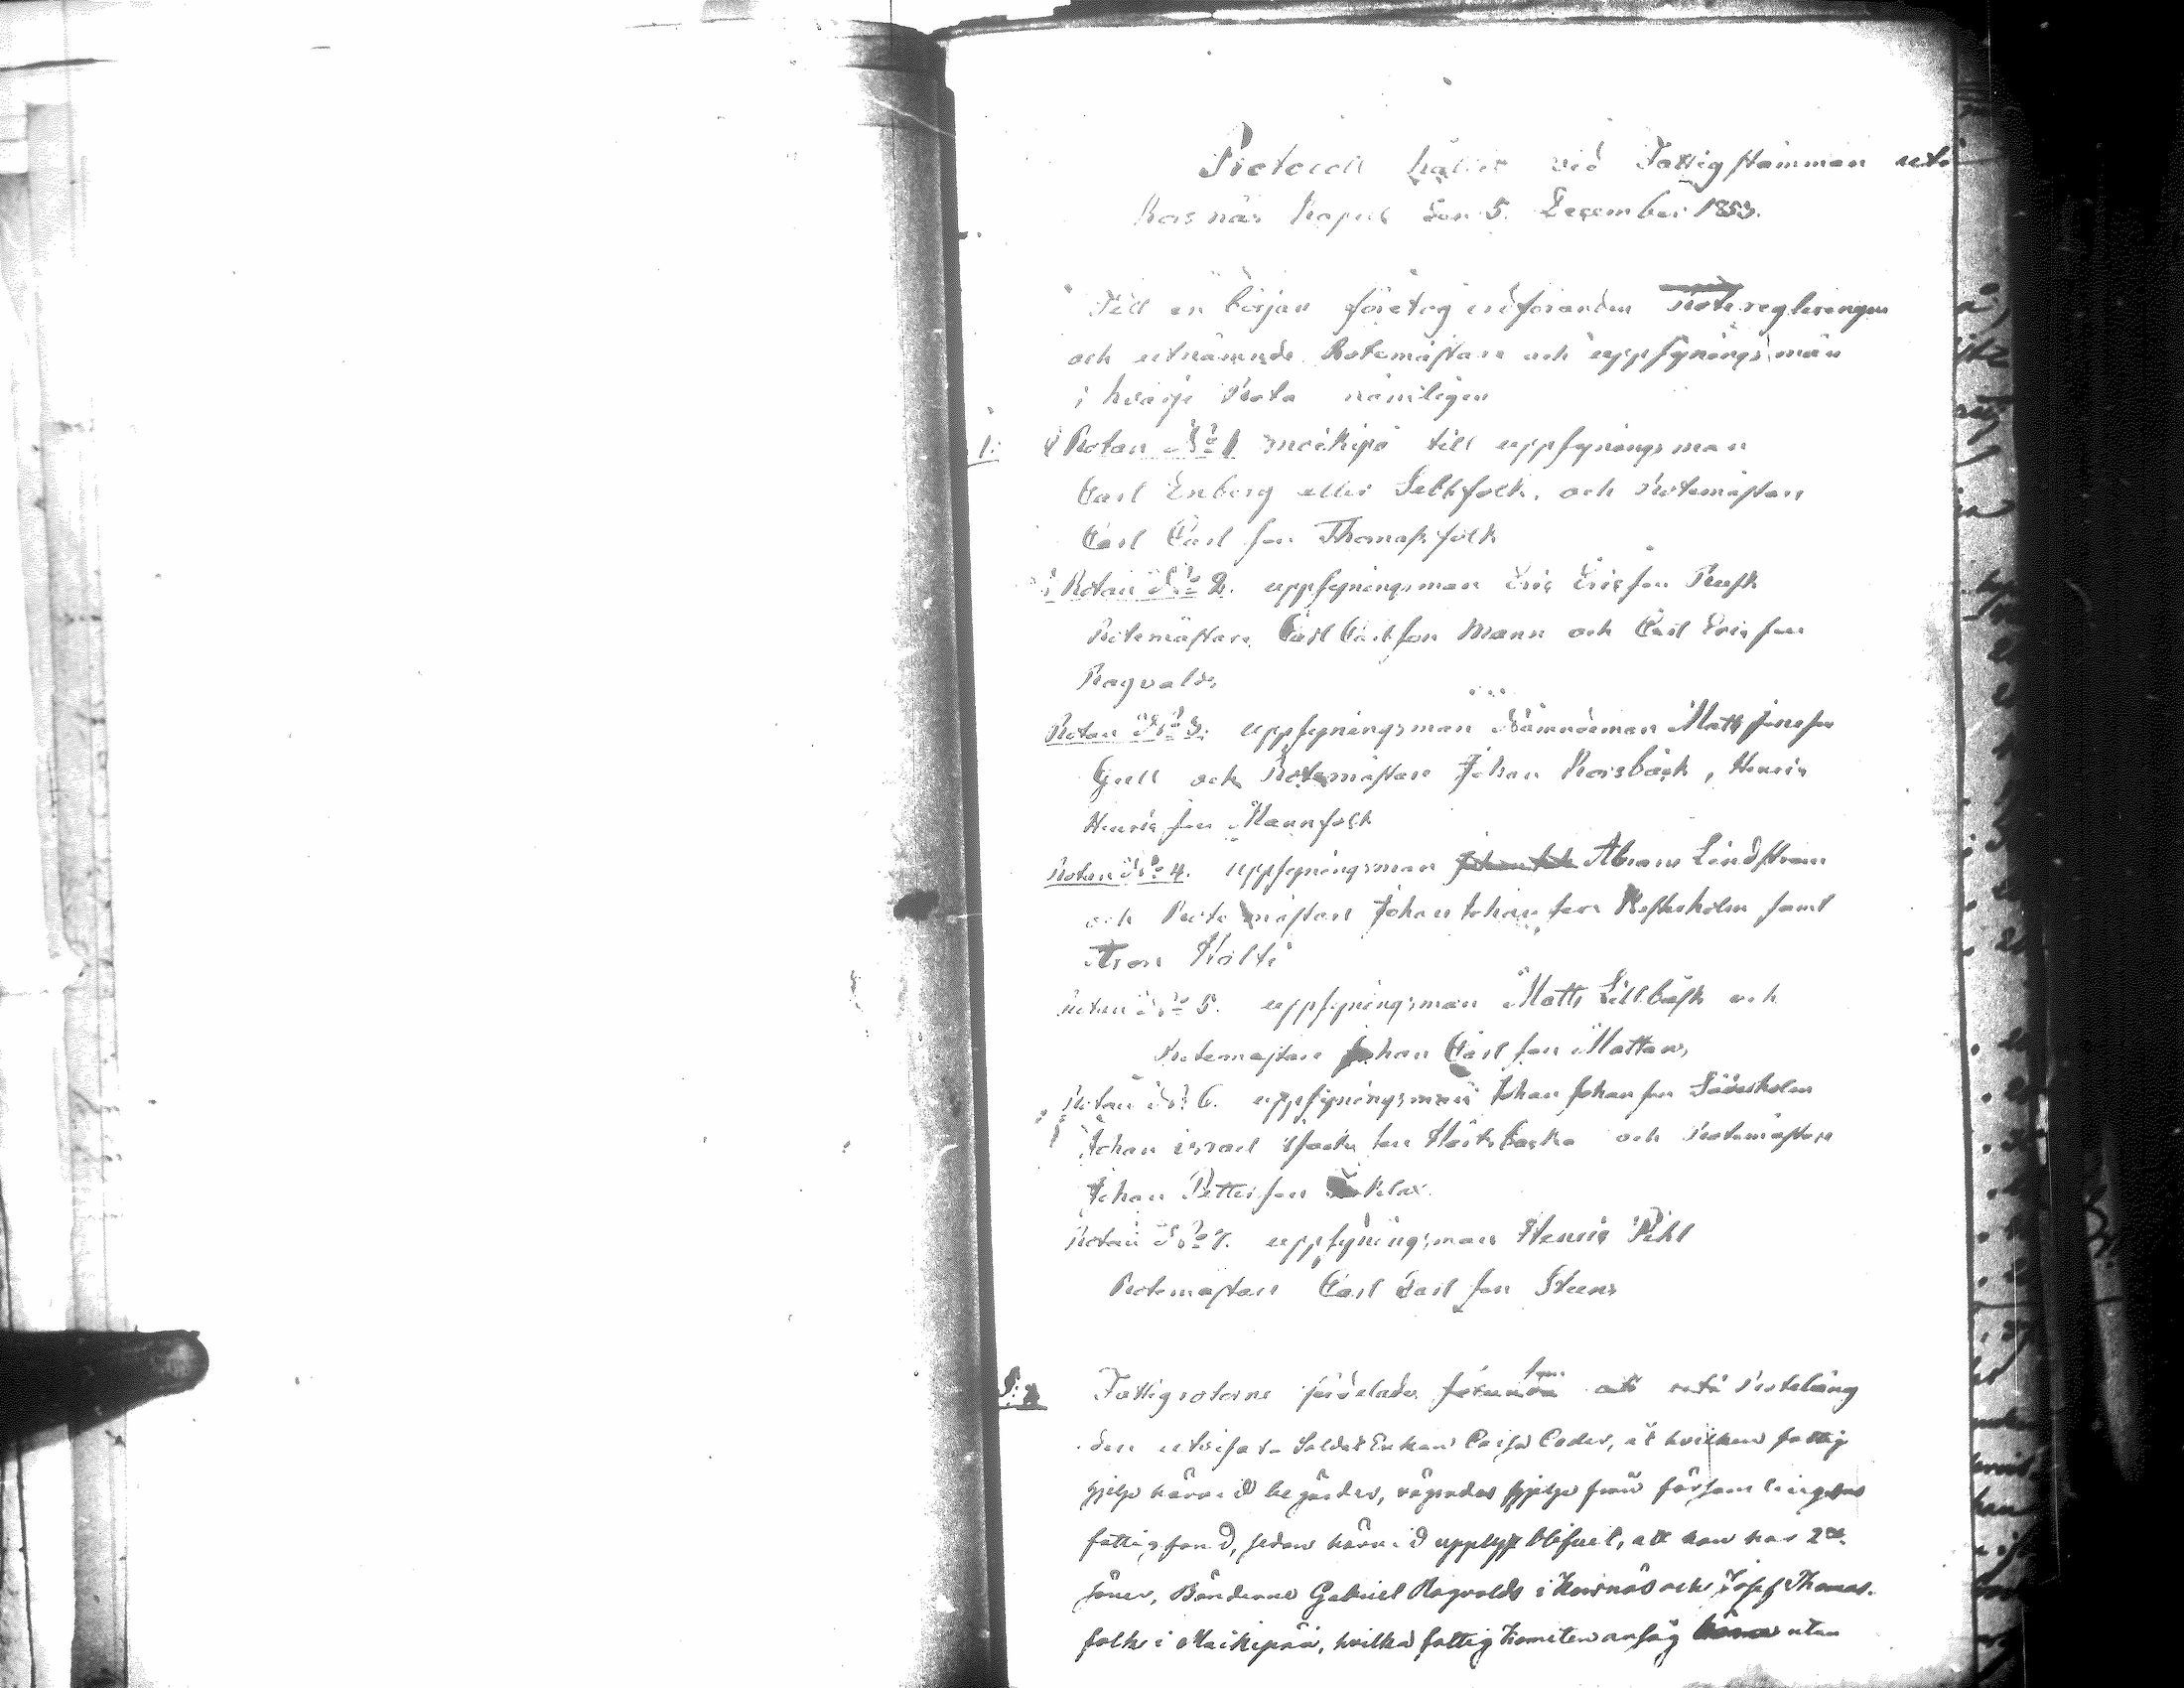 Protocoll hållit vid Fattigstämman uti
Korsnäs Kapell den 5. December 1853.
Till en början företog ordföranden Rote regleringen
och utnämnde Rotemästare och uppsyningsmän
i hvarje Rota nämligen
1: i Rotan No 1 Moikipä till uppsyningsman
Carl Enberg eller folk, och Rotemästare
Carl Carl son Thomasfolk
i Rotan No 2. uppsyningsman Eric Ericson Rusk
Rotemästare Carl Carlson Mann och Carl Ericson
Ragvalds
Rotan No 3. uppsyningsman Nämndeman Matts
Gull och Rotemästare Johan Korsbäck, Henric
Henricson Mannfolk
Rotan No 4. uppsyningsman Abram Lindström
och Rotemästare Johan Johan son samt
Aron
Rotan No 5. uppsyningsman Matts Lillbäck och
Rotemästare Johan Carl son Mattans
Rotan No 6. uppsyningsman Johan Johan son Söderholm
Johan Israel son och Rotemästare
Johan Petterson
Rotan No 7. uppsyningsman Henric Pihl
Rotemästare Carl Carl son Steens
Fattigrotorne fördelades
den utvista Soldat Enkan Caisa Ceder, åt hvilken fattig
hjelp härvid begärdes, vägrades hjelp från församlingens
fattigfond, sedan härvid upplyst blifvit, att hon har 2ne
söner, Bönderne Gabriel Ragvalds i Korsnäs och Josef Thomas-
folk i Moikipää, hvilka fattig Komiten ansåg utan